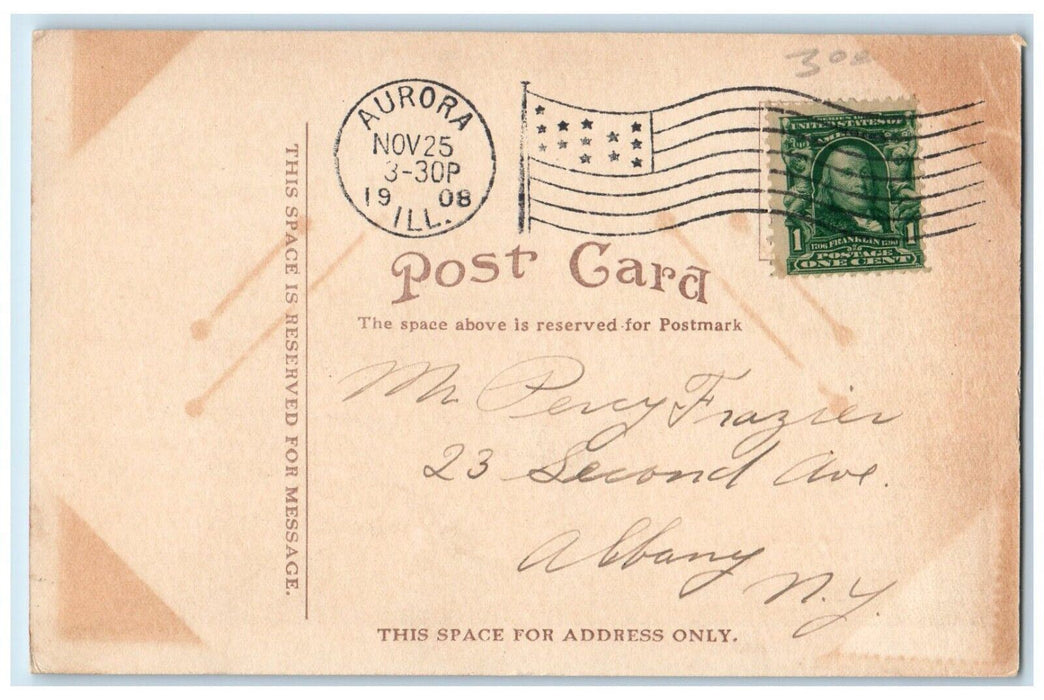 3.00
AURORA
NOV 25
3-30P
19 08
ILL.
SERIES OF 1902
UNITED STATES OF
AMERICA
1 1
1706 FRANKLIN 1790
POSTAGE
ONE CENT
Post Card
The space above is reserved for Postmark
THIS SPACE IS RESERVED FOR MESSAGE.
Mr. Percy Frazier
23 Second Ave.
Albany
N.Y.
THIS SPACE FOR ADDRESS ONLY.